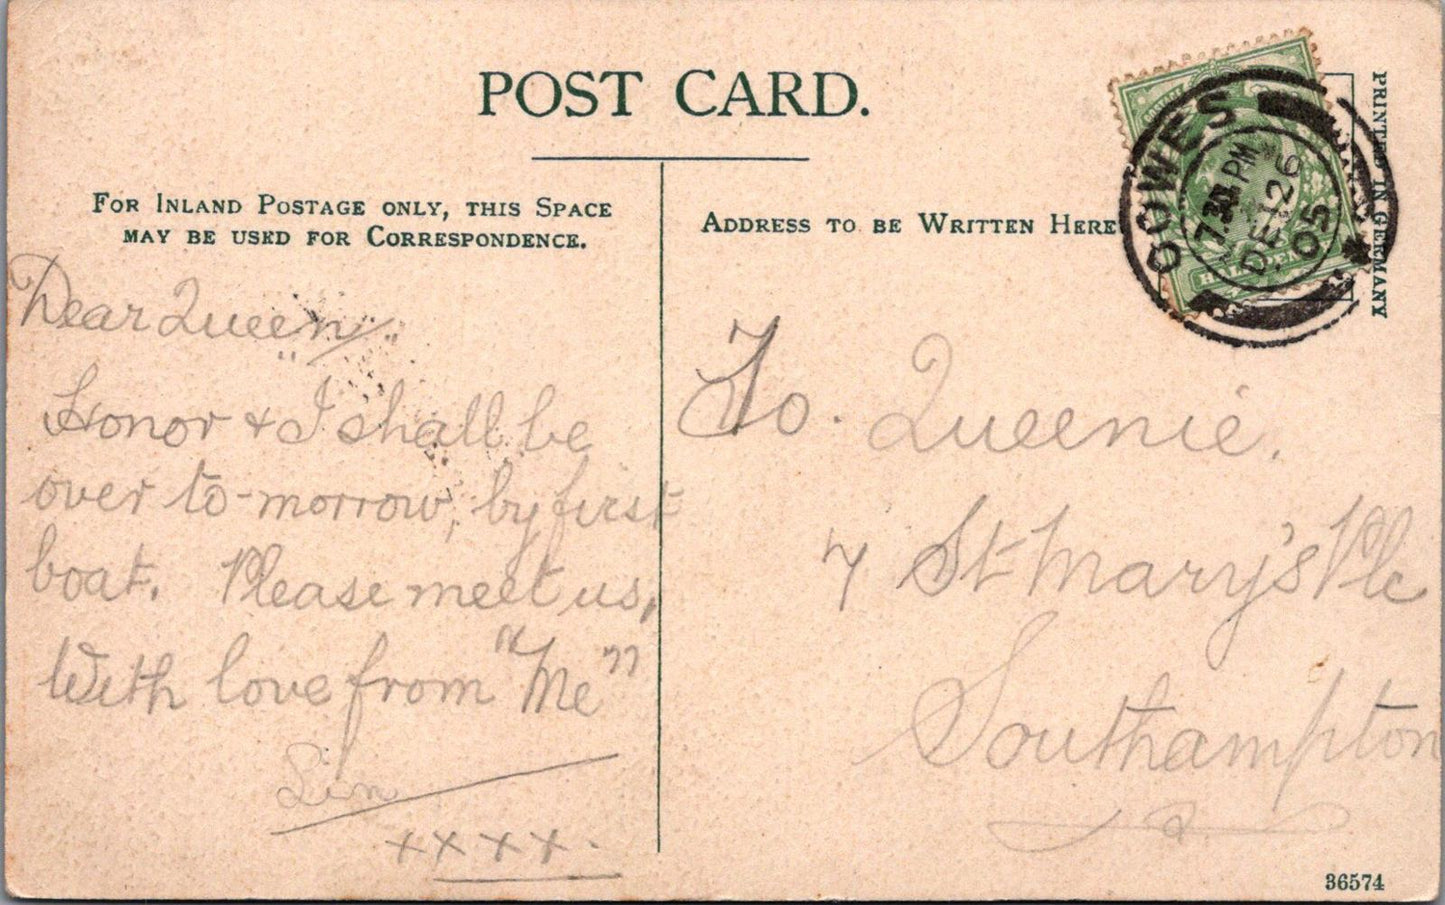 POST CARD.
FOR INLAND POSTAGE ONLY, THIS SPACE
MAY BE USED FOR CORRESPONDENCE.
Dear "Queen"
Honor & I shall be
over to-morrow, by first
boat. Please meet us,
With love from "Me"
xxxx.
ADDRESS TO BE WRITTEN HERE
COWES
7.30 PM
DE 26
05
HALFPENNY
PRINTED IN GERMANY
To. Queenie,
7 St Mary's Ple
Southampton
36574